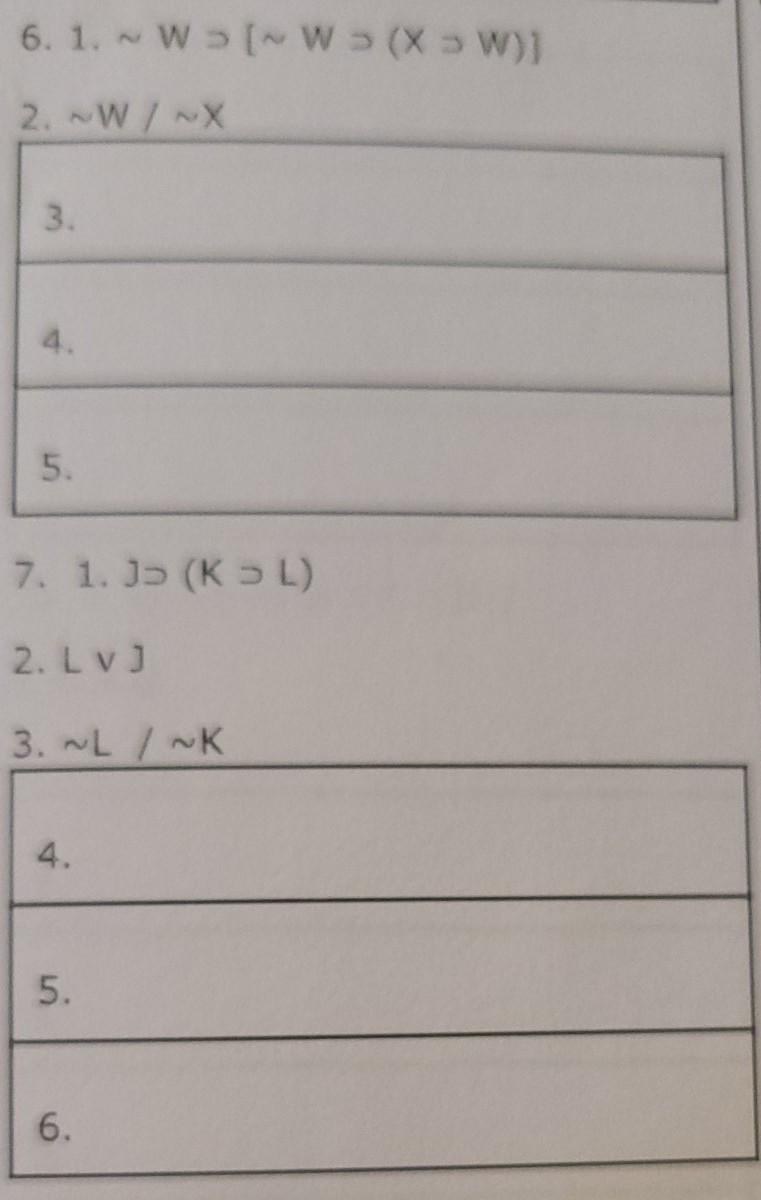 6. 1. ~ W ⊃ [~ W ⊃ (X ⊃ W)]
2. ~W / ~X
3.
4.
5.
7. 1. J⊃ (K ⊃ L)
2. L v J
3. ~L / ~K
4.
5.
6.